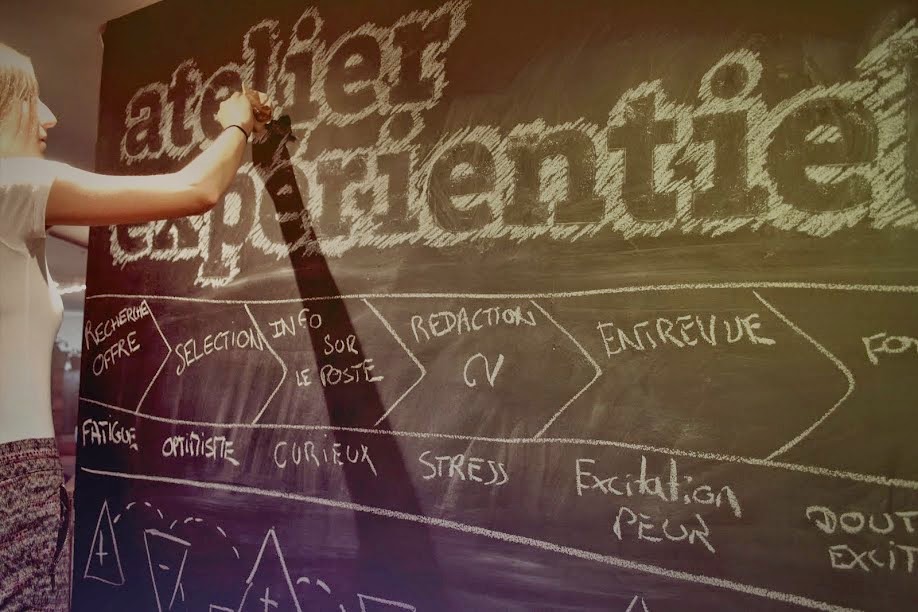 atelier
expérientiel
RECHERCHE
OFFRE
SELECTION
INFO
SUR
LE POSTE
REDACTION
CV
ENTREVUE
FATIGUE
OPTIMISTE
CURIEUX
STRESS
Excitation
PEUR
DOUT
EXCIT